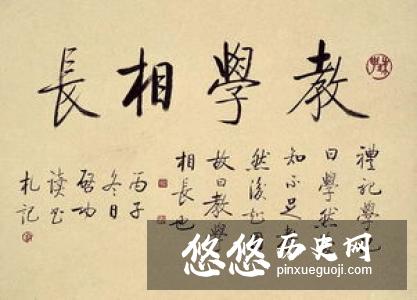 教學相長
禮記學記
曰學然
知不足教
然後知
故曰教學
相長也
丙子
冬日
啓功
讀書
札記
悠悠历史网
pinxueguoji.com